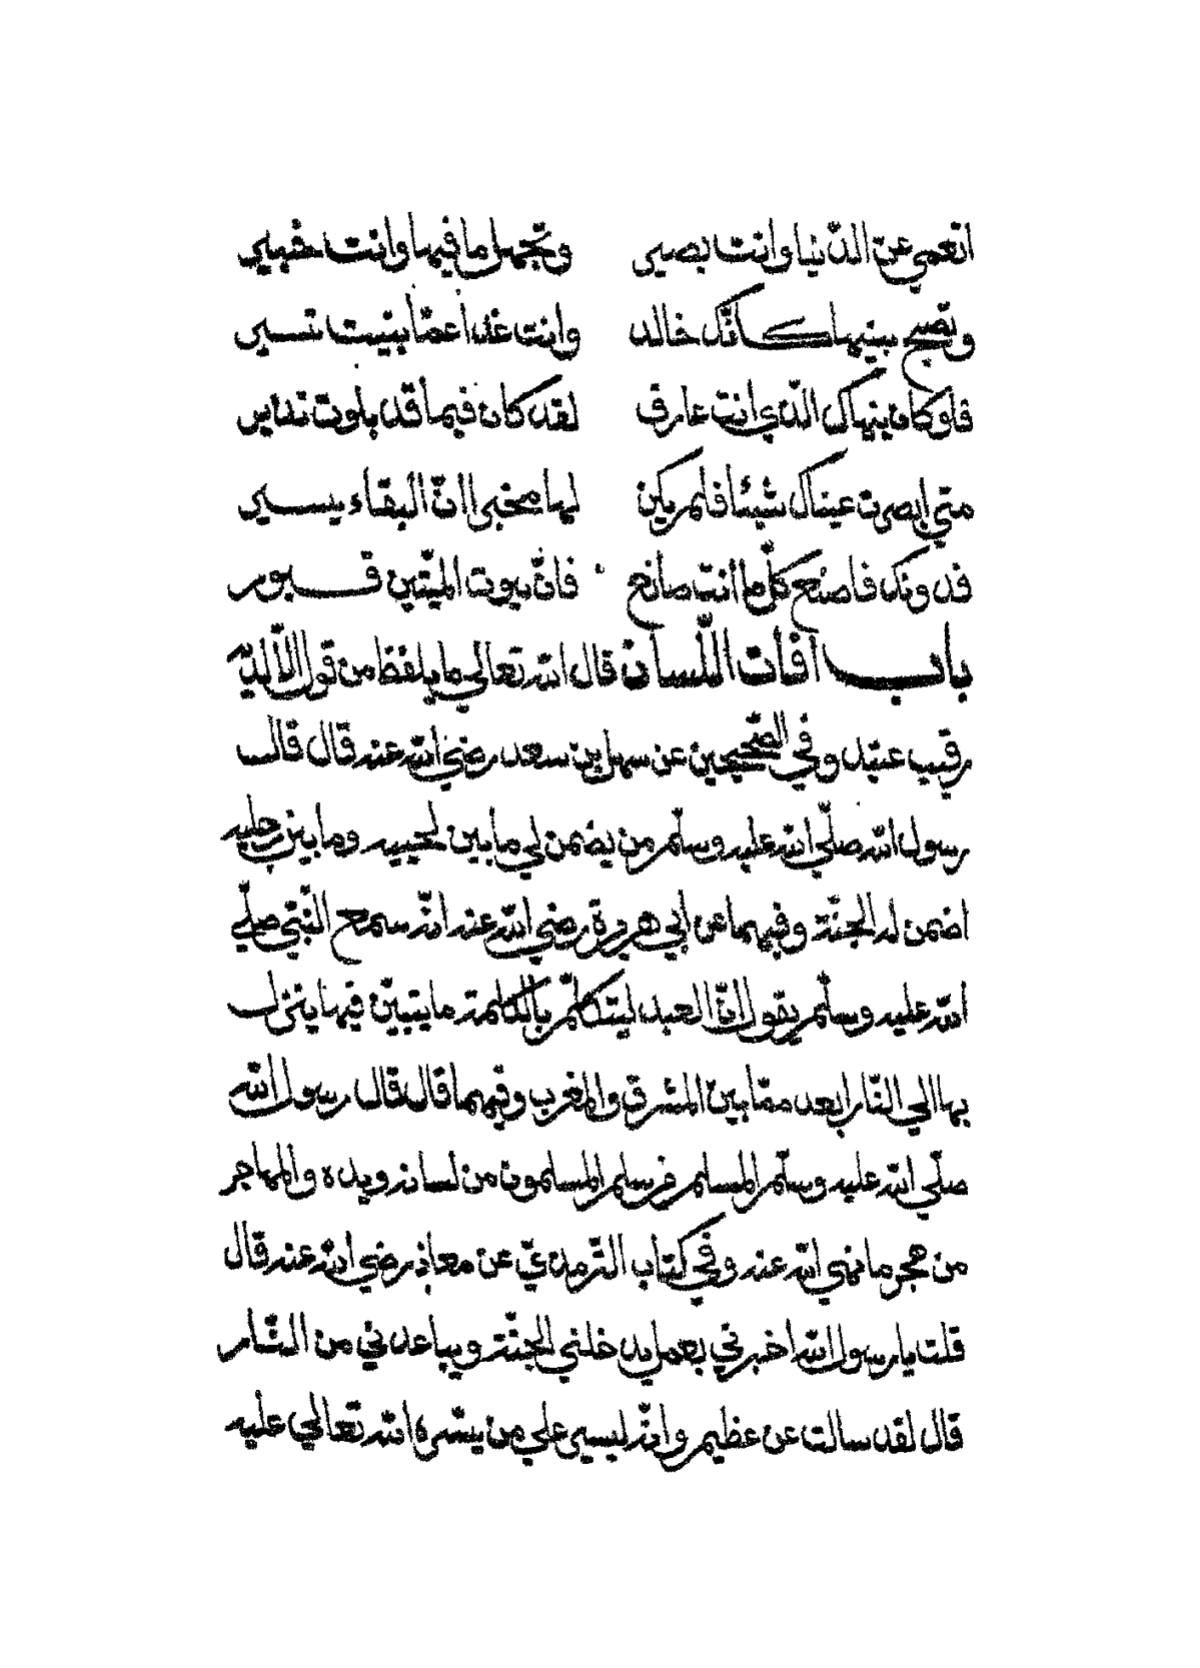 اتعمي عن الدّنيا وانت بصير وتجهل ما فيها وانت خبير
وتصبح بينها كانّك خالد وانت غدا عمّا بنيت تسير
فلو كان ينهاك الّذي انت عارف لقد كان فيما قد بلوت نذير
متي ابصرت عيناك شيئا فلم يكن لها مخبرا انّ البقاء يسير
فدونك فاصنع كلّ ما أنت صانع فانّ بيوت الميّتين قبور
باب افات اللّسان قال الله تعالي ما يلفظ من قول الّا لديه
رقيب عتيد وفي الصّحيحين عن سهل بن سعد رضي الله عنه قال قال
رسول الله صلّي الله عليه وسلّم من يضمن لي ما بين لحييه وما بين رجليه
اضمن له الجنّة وفيهما عن ابي هريرة رضي الله عنه انّه سمع النّبيّ صلّي
الله عليه وسلّم يقول انّ العبد ليتكلّم بالكلمة ما يتبيّن فيها ينزل
بها الي النّار ابعد ممّا بين المشرق والمغرب وفيهما قال قال رسول الله
صلّي الله عليه وسلّم المسلم من سلم المسلمون من لسانه ويده والمهاجر
من هجر ما نهي الله عنه وفي كتاب التّرمذيّ عن معاذ رضي الله عنه قال
قلت يا رسول الله اخبرني بعمل يدخلني الجنّة ويباعدني من النّار
قال لقد سالت عن عظيم وانّه ليسير علي من يسّره الله تعالي عليه